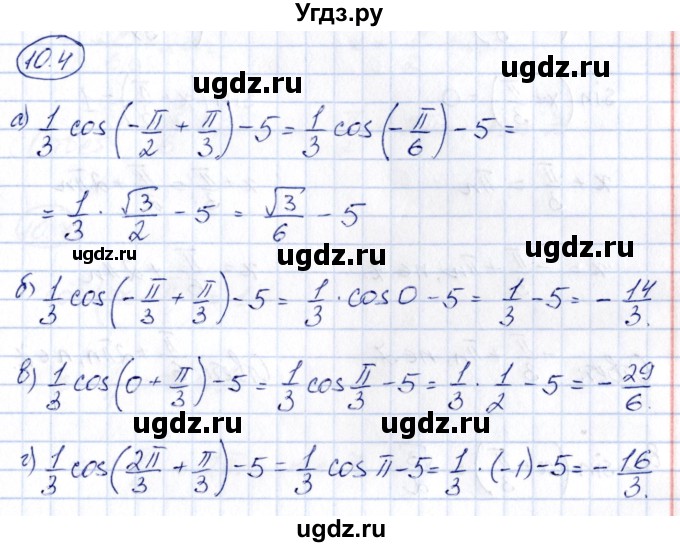 Угдз.ру
10.4
ugdz.ru ugdz.ru
а) 1/3 cos(-π/2 + π/3) - 5 = 1/3 cos(-π/6) - 5 =
= 1/3 · √3/2 - 5 = √3/6 - 5
ugdz.ru ugdz.ru
б) 1/3 cos(-π/3 + π/3) - 5 = 1/3 · cos 0 - 5 = 1/3 - 5 = - 14/3.
ugdz.ru
в) 1/3 cos(0 + π/3) - 5 = 1/3 cos π/3 - 5 = 1/3 · 1/2 - 5 = - 29/6.
ugdz.ru ugdz.ru
г) 1/3 cos(2π/3 + π/3) - 5 = 1/3 cos π - 5 = 1/3 · (-1) - 5 = - 16/3.
ugdz.ru